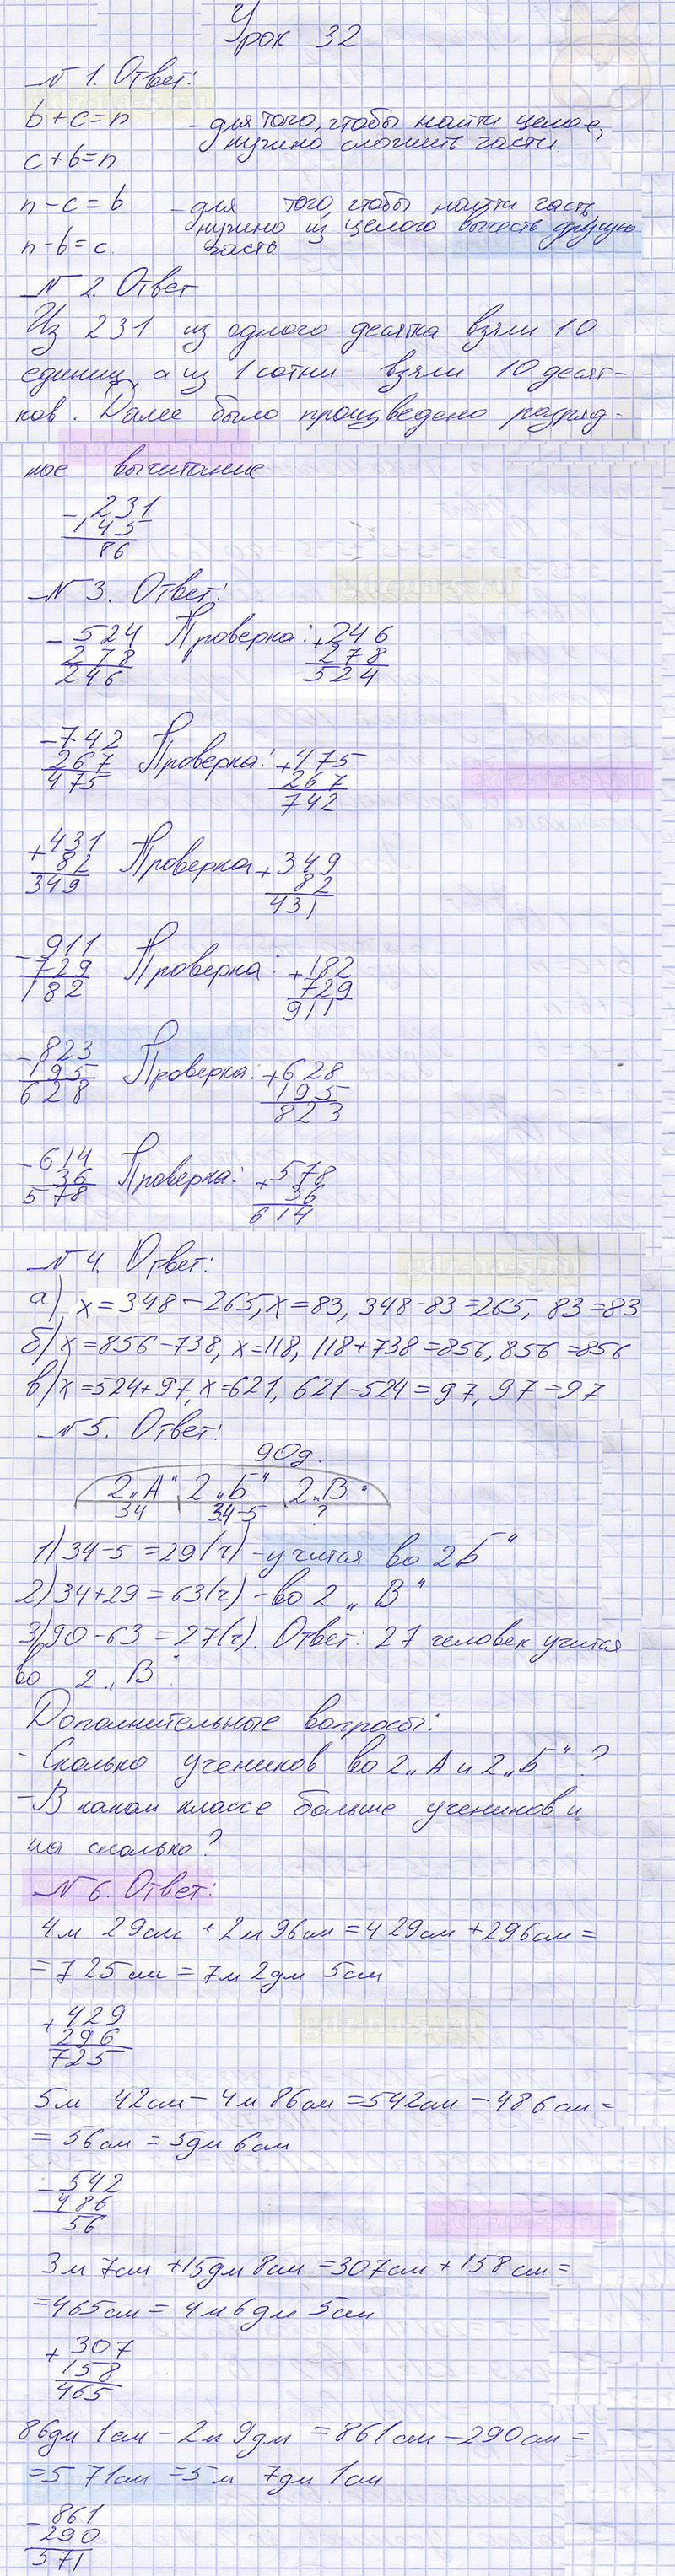 Урок 32
№ 1. Ответ:
b + c = n - для того, чтобы найти целое,
нужно сложить части.
c + b = n
n - c = b - для того чтобы найти часть
нужно из целого вычесть другую
n - b = c. часть
№ 2. Ответ
Из 231 из одного десятка взяли 10
единиц, а из 1 сотни взяли 10 десят-
ков. Далее было произведено разряд-
ное вычитание
- 231
145
86
№ 3. Ответ:
- 524 Проверка: + 246
278 278
246 524
- 742 Проверка: + 475
267 267
475 742
+ 431 Проверка + 349
82 82
349 431
- 911 Проверка: + 182
729 729
182 911
- 823 Проверка: + 628
195 195
628 823
- 614 Проверка: + 578
36 36
578 614
№ 4. Ответ:
а) x = 348 - 265, x = 83, 348 - 83 = 265, 83 = 83
б) x = 856 - 738, x = 118, 118 + 738 = 856, 856 = 856
в) x = 524 + 97, x = 621, 621 - 524 = 97, 97 = 97
№ 5. Ответ:
90д.
2 „А“ 2 „Б“ 2 „В“
34 34-5 ?
1) 34 - 5 = 29 (ч) - учится во 2 Б“
2) 34 + 29 = 63 (ч) - во 2 „В“
3) 90 - 63 = 27 (ч). Ответ: 27 человек учится
во 2 „В“
Дополнительные вопросы:
- Сколько учеников во 2 „А и 2 „Б“ ?
- В каком классе больше учеников и
на сколько?
№ 6. Ответ:
4м 29см + 2м 96см = 429см + 296см =
= 725см = 7м 2дм 5см
+ 429
296
725
5м 42см - 4м 86см = 542см - 486см =
= 56см = 5дм 6см
- 542
486
56
3м 7см + 15дм 8см = 307см + 158см =
= 465см = 4м 6дм 5см
+ 307
158
465
86дм 1см - 2м 9дм = 861см - 290см =
= 571см = 5м 7дм 1см
- 861
290
571